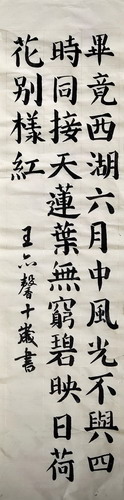 畢竟西湖六月中風光不與四
時同接天蓮葉無窮碧映日荷
花别樣紅
王亦馨十歲書